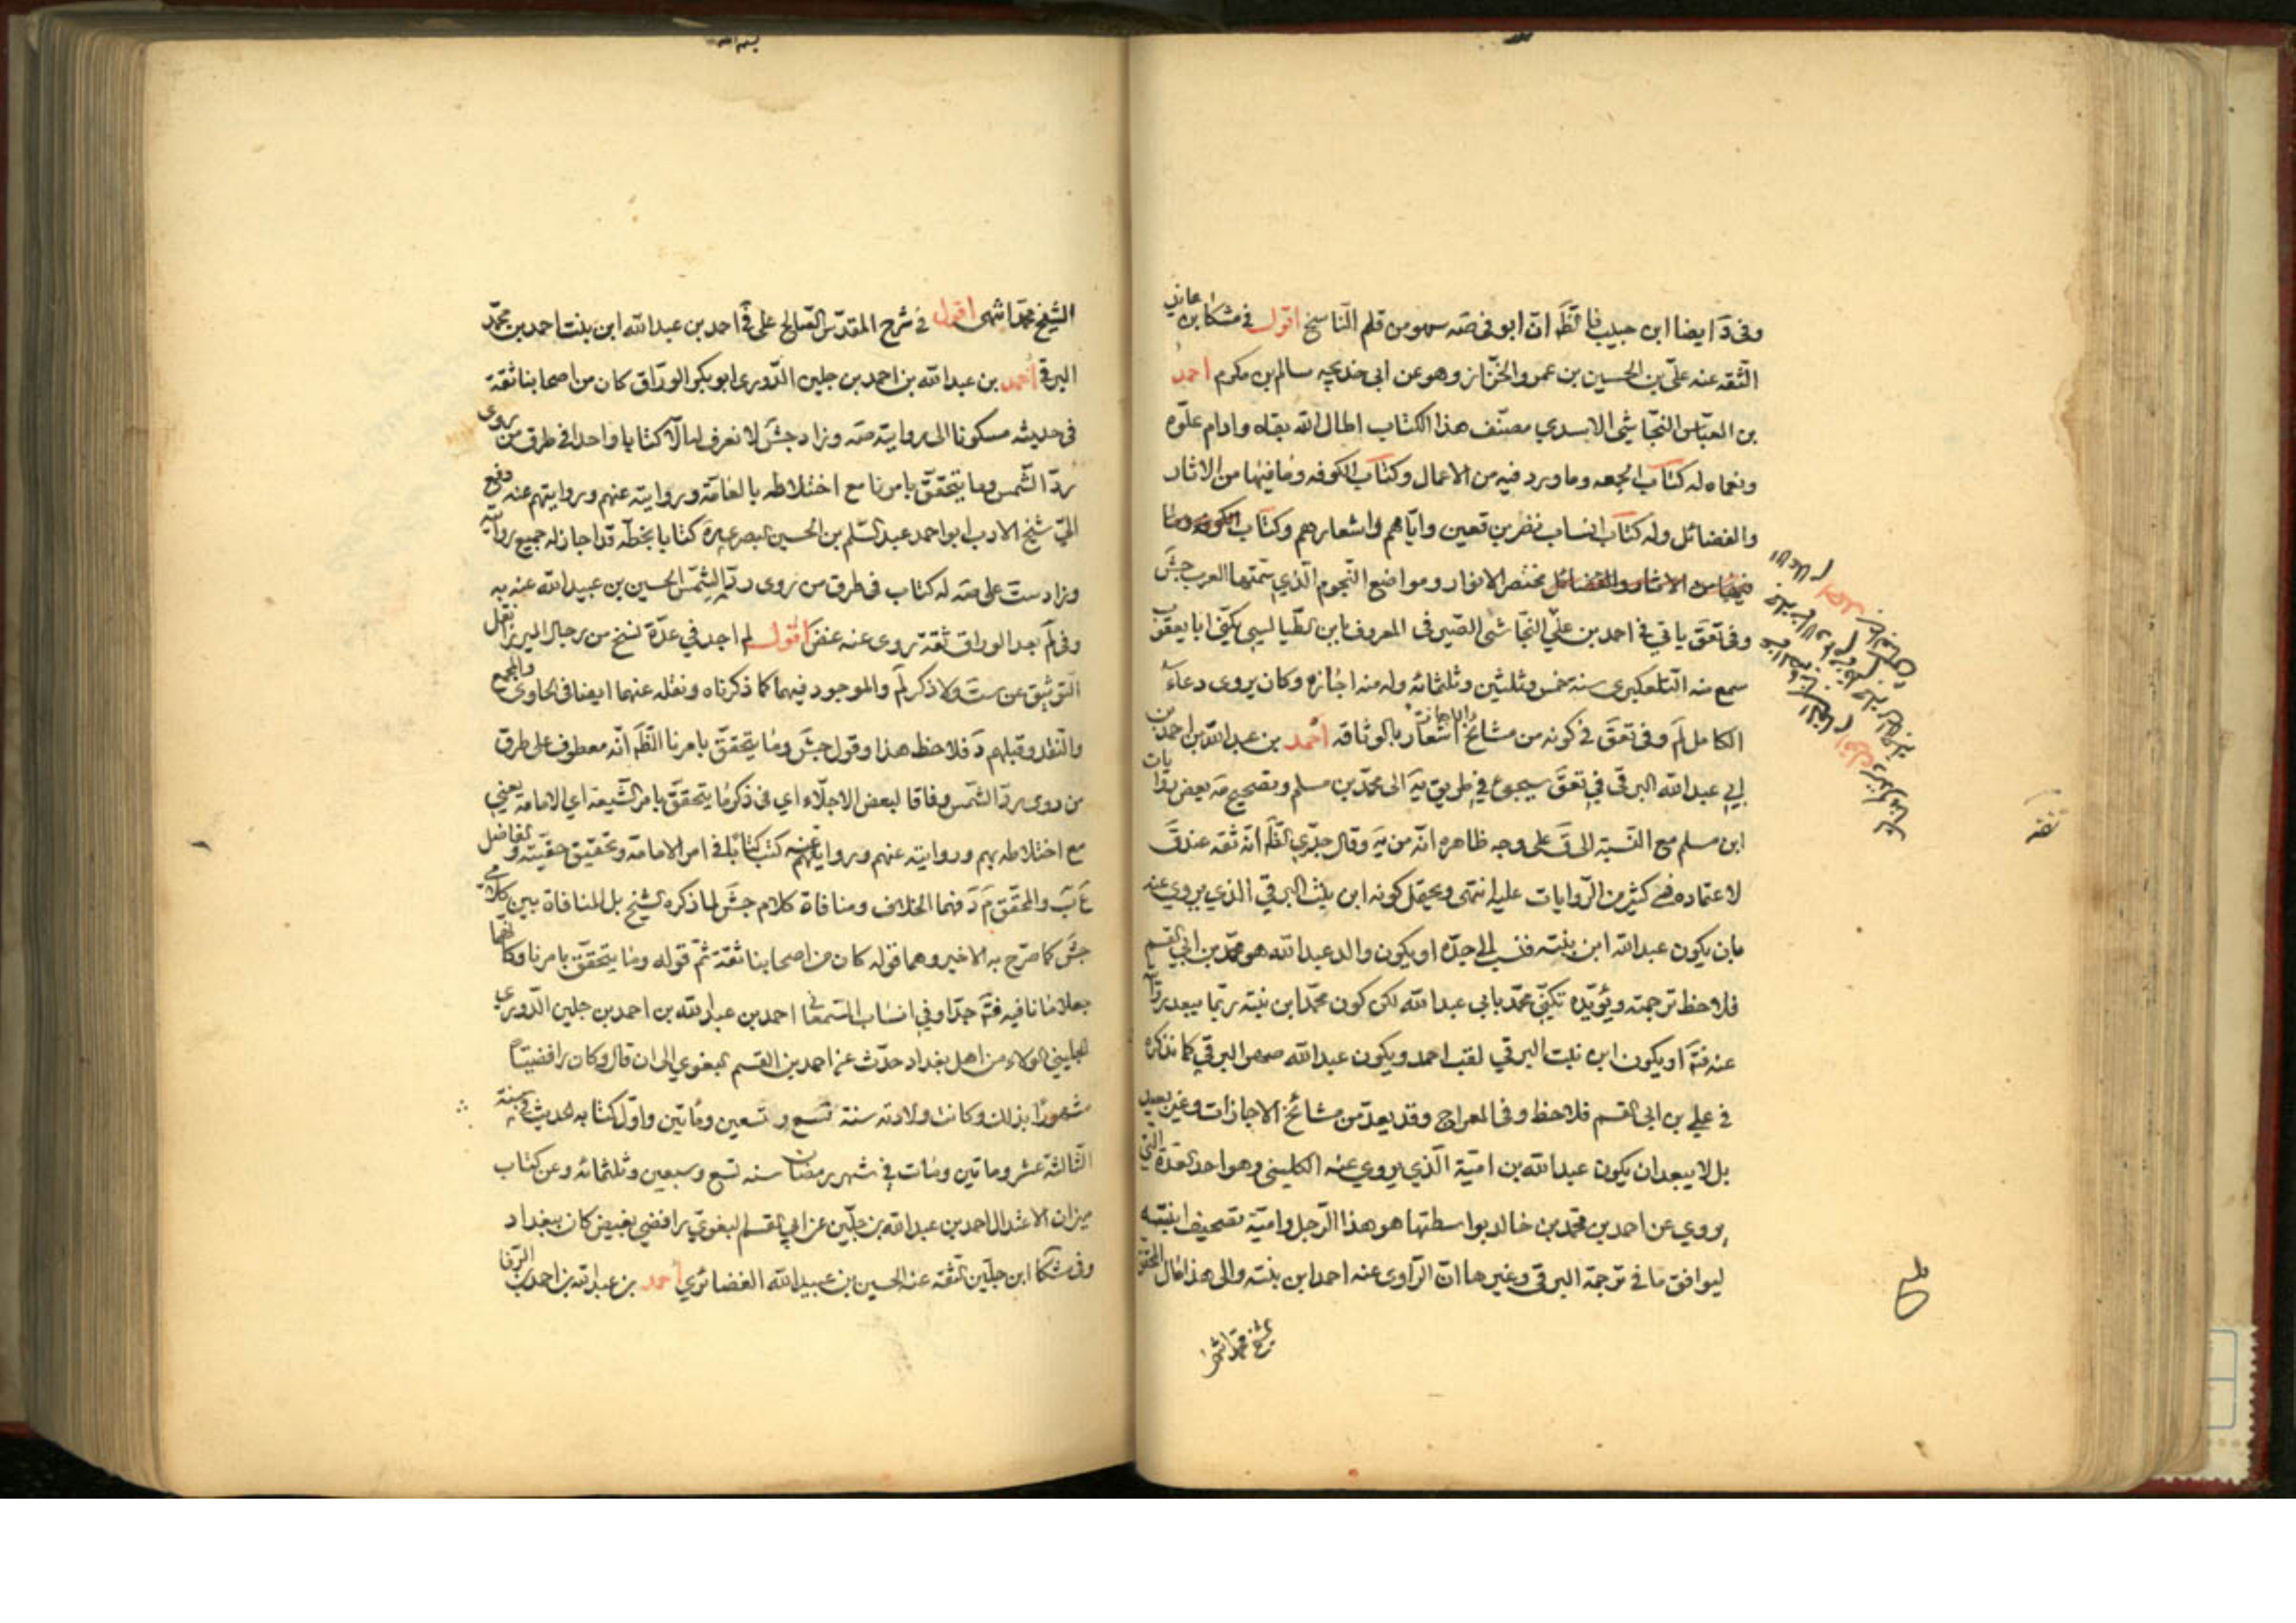 وفى د ايضا ابن حبيب فالظ ان ابو فى صه سهو من قلم الناسخ اقول فى مشكا ابن عائذ
الثقه عنه علىّ بن الحسين بن عمرو الخزّاز وهو عن ابى خديجه سالم بن مكرم احمد
بن العبّاس النجّاشى الاسدي مصنّف هذا الكتاب اطال الله بقاه وادام علوّه
ونعماه له كتاب الجمعه وما ورد فيه من الاعمال وكتاب الكوفه وما فيها من الاثار
والفضائل وله كتاب انساب نضر بن قعين وايّامهم واشعارهم وكتاب الكوفه وما
فيها من الاثار والفضائل مختصر الانوار ومواضع النجوم الّذي سمّتها العرب جش
وفى تعق ياتي فى احمد بن علىّ النجّاشى الصيرفى المعروف بابن الطّيالسي يكنّى ابا يعقوب
سمع منه التلعكبرى سنة خمس وثلثين وثلثمائه وله منه اجازه وكان يروى دعاء
الكامل لم وفى تعق فى كونه من مشائخ الاجازة اشعار بالوثاقه احمد بن عبد الله بن احمد بن
ابي عبد الله البرقى فى تعق سيجىء فى طريق يه الى محمّد بن مسلم وتصحيح مه بعض روايات
ابن مسلم مع النسبة الى ق على وجه ظاهره انّه من يه وقال جدّي الظّ انّه ثقه عند ق
لاعتماده فى كثير من الرّوايات عليه انتهى ويحتمل كونه ابن بنت البرقي الذي يروي عنه
بان يكون عبد الله ابن بنته فنسب الى جدّه او يكون والد عبد الله هو محمّد بن ابي القسم
فلاحظ ترجمته ويؤيّده تكنّى محمّد بابي عبد الله لكن كون محمّد ابن بنته ربّما يبعد رواية
عنه فته او يكون ابن بنت البرقي لقب احمد ويكون عبد الله صهر البرقي كما نذكره
فى علي بن ابي القسم فلاحظ وفى المعراج وقد يعدّ من مشائخ الاجازات وغير بعيد
بل لا يبعد ان يكون عبد الله بن اميّة الّذي يروي عنه الكلينى وهو احد العدّة التى
يروي عن احمد بن محمّد بن خالد بواسطتها هو هذا الرّجل واميّة تصحيف ابنته
ليوافق ما فى ترجمة البرقى وغيرها انّ الرّاوى عنه احمد ابن بنته والى هذا مال المحقق
الشيخ محمّد انتهى
ثقه
الشيخ محمّد انتهى اقول فى شرح المقدّس الصالح على فى احمد بن عبد الله ابن بنت احمد بن محمّد
البرقى احمد بن عبد الله بن احمد بن جلين الدّورى ابو بكر الورّاق كان من اصحابنا ثقة
فى حديثه مسكونا الى روايته صه وزاد جش لا نعرف له الّا كتابا واحدا فى طرق من روى
ردّ الشّمس وما يتحقق بامرنا مع اختلاطه بالعامّة وروايته عنهم وروايتهم عنه دفع
اليّ شيخ الادب ابو احمد عبد السّلم بن الحسين البصرى ره كتابا بخطّه قد اجاز له جميع روايته
وزاد ست على صه له كتاب فى طرق من روى ردّ الشّمس الحسين بن عبيد الله عنه به
وفى لم بعد الوراق ثقة روى عنه غض اقول لم اجد في عدّة نسخ من رجال الميرزا نقل
التوثيق عن ست ولا ذكر لم والموجود فيهما كما ذكرناه ونقله عنهما ايضا فى الحاوى والمجمع
والنقد وقبلهم د فلاحظ هذا وقول جش وما يتحقق بامرنا الظّ انّه معطوف على طرق
من روى ردّ الشمس وفاقا لبعض الاجلّاء اي فى ذكر ما يتحقق بامر الشّيعه اي الامامة يعني
مع اختلاطه بهم وروايته عنهم وروايتهم عنه كتب كتابا فى امر الامامة وتحقيق حقيّته والفاضل
ع ب والمحقق م د فهما الخلاف ومنافاة كلام جش لما ذكره الشيخ بل المنافاة بين كلامى
جش كما صرّح به الاخير وهما قوله كان من اصحابنا ثقة ثمّ قوله وما يتحقق بامرنا وكانّهما
جعلا ما نافيه فته جدّا وفي انساب السّمعانى احمد بن عبد الله بن احمد بن جلين الدّوري
الجليني الولاء من اهل بغداد حدّث عن احمد بن القسم البغوي الى ان قال وكان رافضيّا
مشهورا بذلك وكانت ولادته سنة تسع وتسعين ومأتين واوّل كتابه الحديث سنة
الثالثة عشر ومأتين ومات فى شهر رمضان سنه تسع وسبعين وثلثمائه وعن كتاب
ميزان الاعتدال احمد بن عبد الله بن جلّين عن ابي القسم البغويّ رافضي بغيض كان ببغداد
وفى مشكا ابن جلّين الثقة عنه الحسين بن عبيد الله الغضائري احمد بن عبد الله بن احمد بن الرّفا